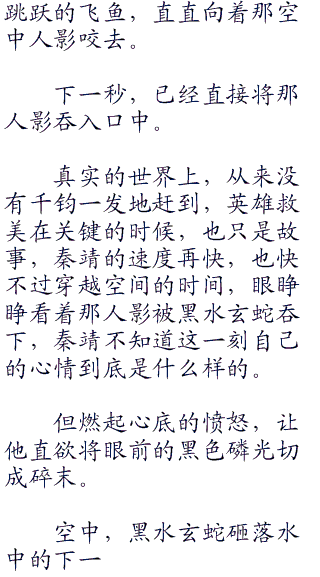 跳跃的飞鱼，直直向着那空
中人影咬去。
下一秒，已经直接将那
人影吞入口中。
真实的世界上，从来没
有千钧一发地赶到，英雄救
美在关键的时候，也只是故
事，秦靖的速度再快，也快
不过穿越空间的时间，眼睁
睁看着那人影被黑水玄蛇吞
下，秦靖不知道这一刻自己
的心情到底是什么样的。
但燃起心底的愤怒，让
他直欲将眼前的黑色磷光切
成碎末。
空中，黑水玄蛇砸落水
中的下一